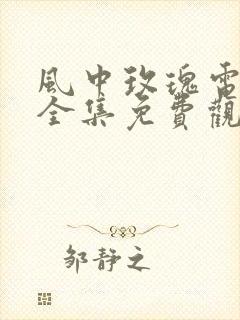 風中玫瑰電
全集免費觀
邹静之